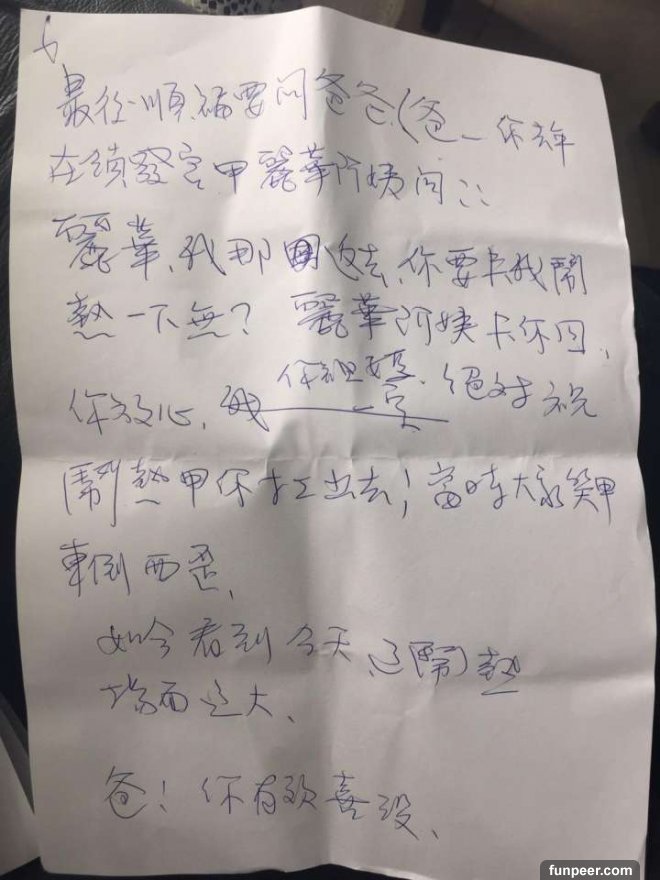 最後順福要問爸爸(爸一你去年
在偵察官甲麗華阿姨問::
麗華、我那返去、你要卡我鬧
熱一下無? 麗華阿姨卡你回、
你祖媽、
你放心、我 一定 絕對
鬧熱甲你扛出去!當時大家笑甲
東倒西歪、
如今看到今天、這(鬧)熱
場面這大、
爸!你有歡喜沒、
funpeer.com